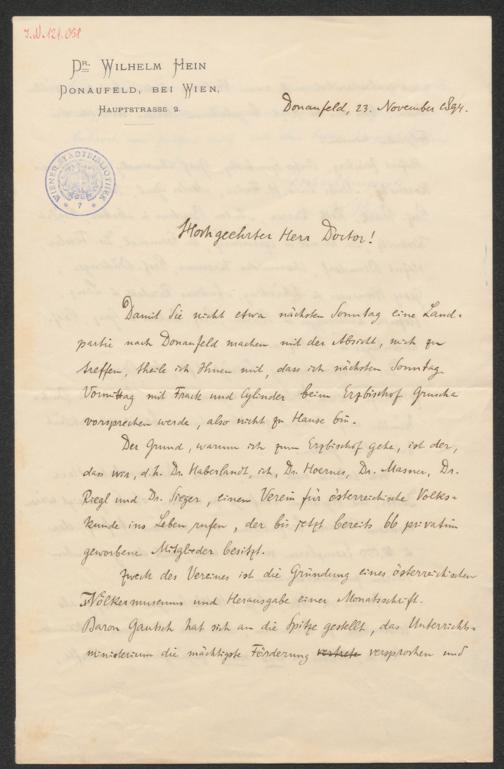 J.N. 121.051
Dr. Wilhelm Hein
Donaufeld, bei Wien,
Hauptstrasse 2.
Donaufeld, 23. November 1894.
WIENER STADTBIBLIOTHEK
Hochgeehrter Herr Doctor!
Damit Sie nicht etwa nächsten Sonntag eine Land-
partie nach Donaufeld machen mit der Absicht, mich zu
treffen, theile ich Ihnen mit, dass ich nächsten Sonntag
Vormittag mit Frack und Cylinder beim Erzbischof Gruscha
vorsprechen werde, also nicht zu Hause bin.
Der Grund, warum ich zum Erzbischof gehe, ist der,
dass wir, d.h. Dr. Haberlandt, ich, Dr. Hoernes, Dr. Masner, Dr.
Riegl und Dr. Sieger, einen Verein für österreichische Volks-
kunde ins Leben rufen, der bis jetzt bereits 66 privatim
geworbene Mitglieder besitzt.
Zweck des Vereines ist die Gründung eines österreichischen
Völkermuseums und Herausgabe einer Monatsschrift.
Baron Gautsch hat sich an die Spitze gestellt, das Unterrichts-
ministerium die mächtigste Förderung vertrete versprochen und